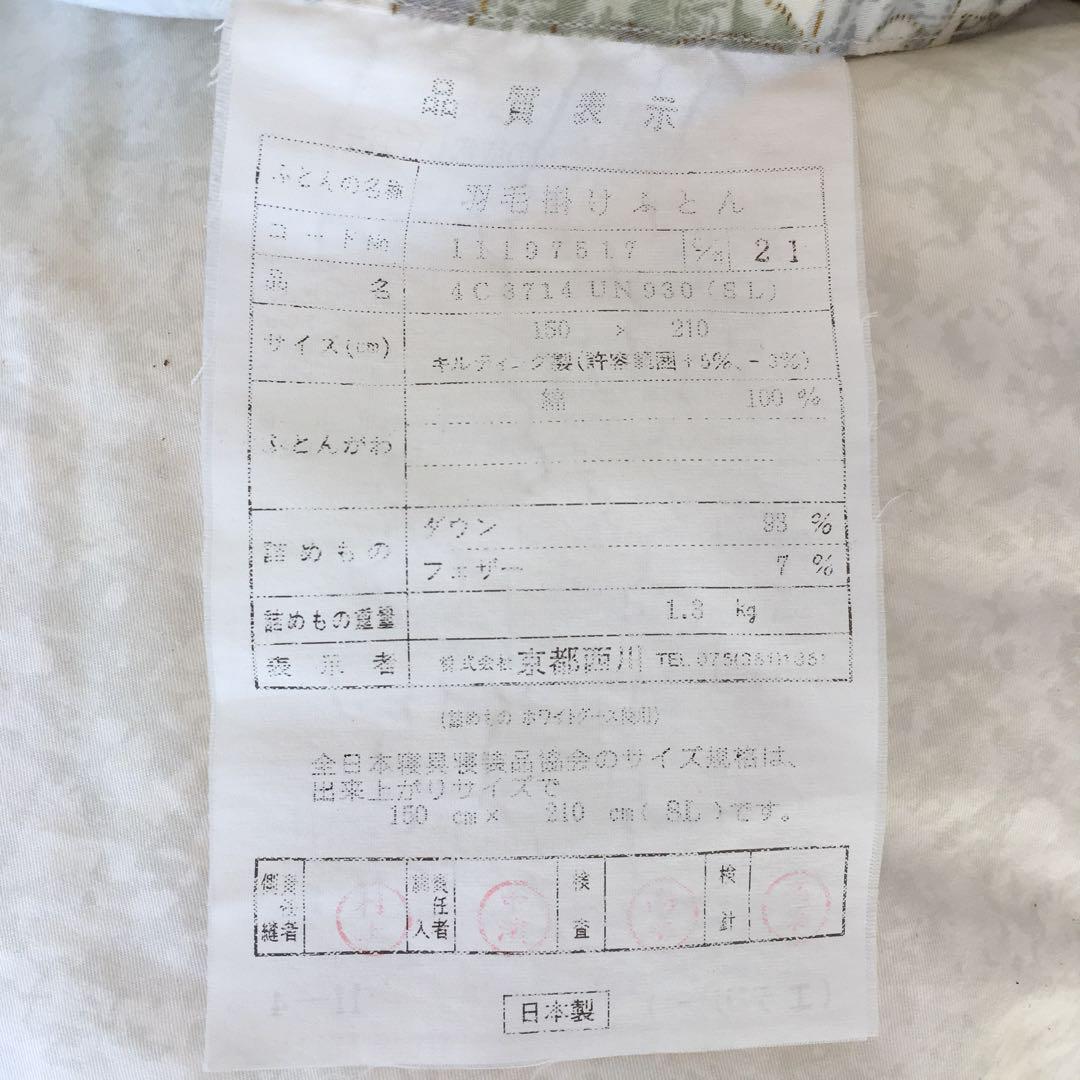 品質表示
ふとんの名称 羽毛掛けふとん
コードNo 11197517 C/# 21
品名 4C3714 UN930(SL)
サイズ(cm) 150 × 210
キルティング製(許容範囲+5%、-3%)
ふとんがわ 綿 100%
詰めもの ダウン 93%
フェザー 7%
詰めもの重量 1.3 kg
表示者 株式会社京都西川 TEL 075(351)
(詰めもの ホワイトグース使用)
全日本寝具寝装品協会のサイズ規格は、
出来上がりサイズで
150 cm × 210 cm(SL)です。
側縫責任者 綿入責任者 検査 検針
日本製